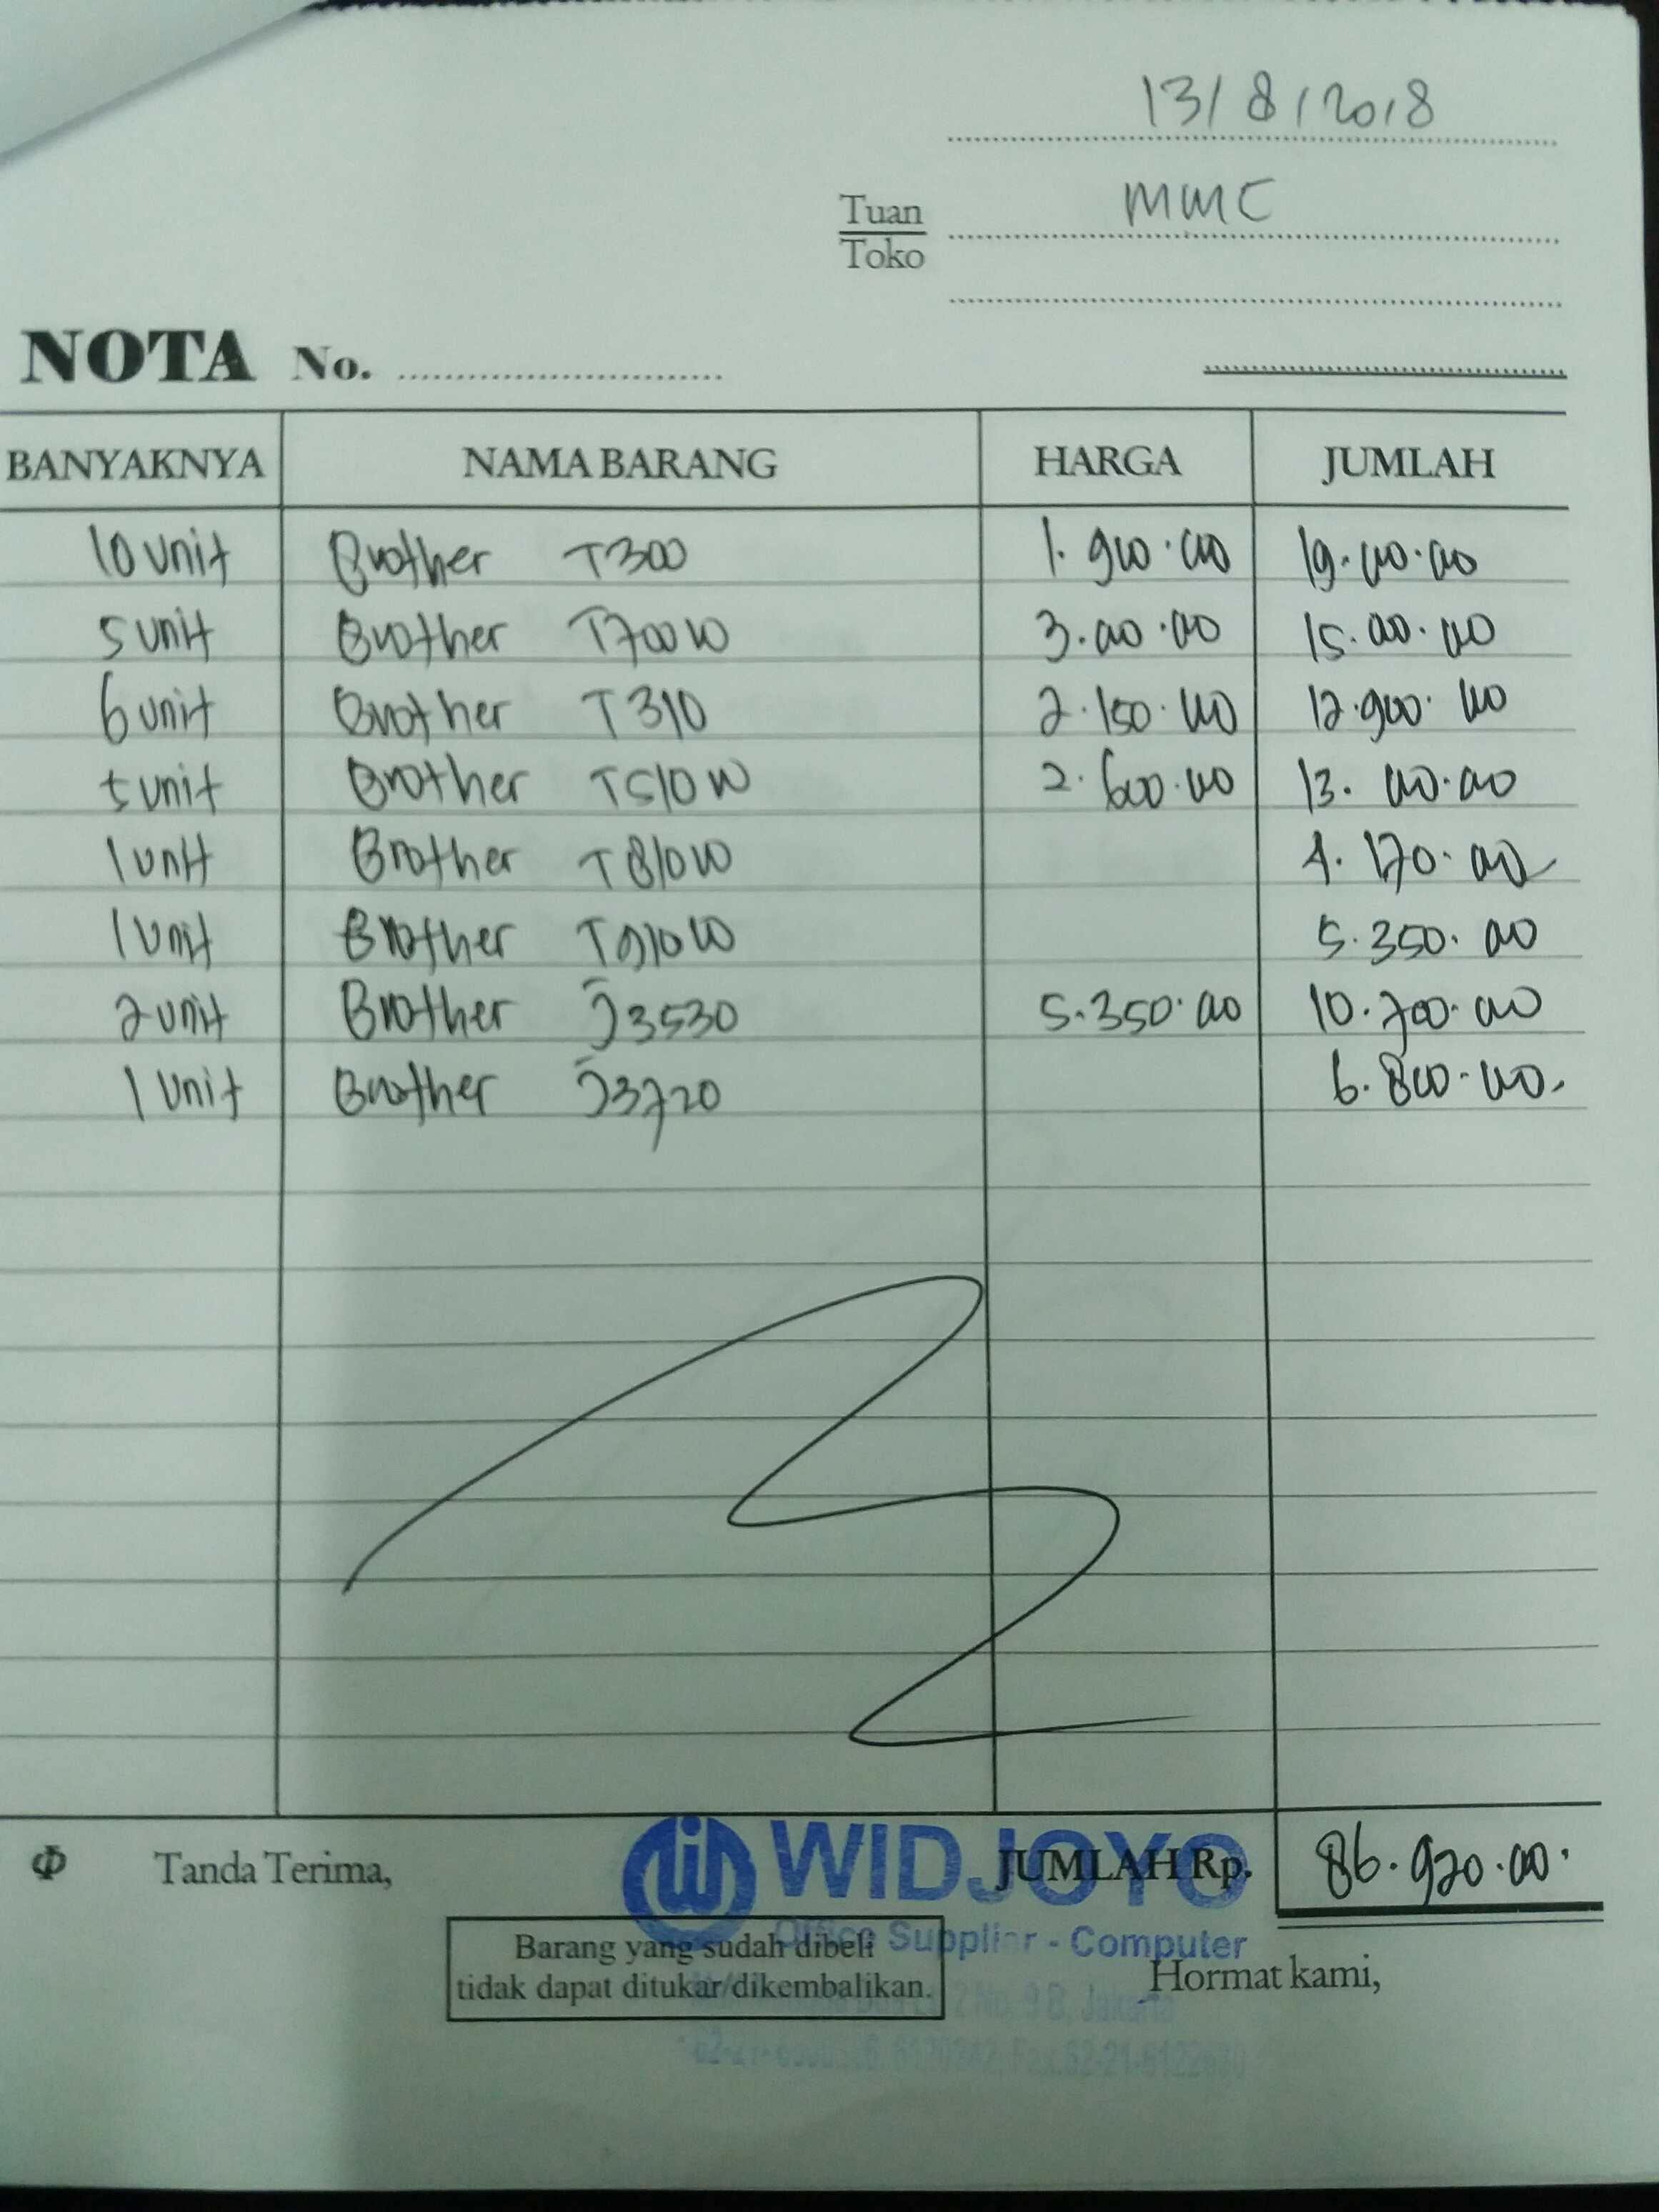 13/8/2018
Tuan
MMC
Toko
NOTA No.
BANYAKNYA NAMA BARANG HARGA JUMLAH
10 unit Brother T300 1.900.000 19.000.000
5 unit Brother T700W 3.000.000 15.000.000
6 unit Brother T310 2.150.000 12.900.000
5 unit Brother T510W 2.600.000 13.000.000
1 unit Brother T810W 4.170.000
1 unit Brother T910W 5.350.000
2 unit Brother J3530 5.350.000 10.700.000
1 unit Brother J3720 6.800.000
Φ Tanda Terima,
WIDJOYO
JUMLAH Rp. 86.920.000
Office Supplier - Computer
Barang yang sudah dibeli
tidak dapat ditukar/dikembalikan.
Hormat kami,
2 No. 9 B, Jakarta
6120242, Fax.62-21-6122630